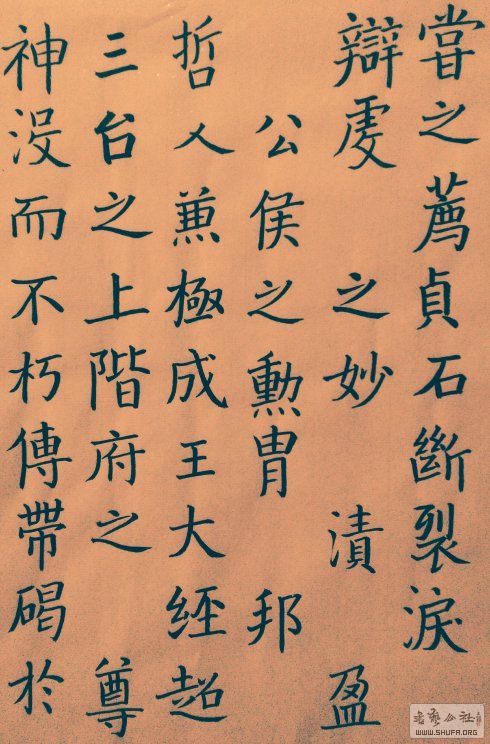 甞之薦貞石斷裂淚
辯虔 之妙 漬 盈
公侯之勲胄 邦
哲人兼極成王大經超
三台之上階府之 尊
神没而不朽傳帶碣於
WWW.SHUFA.ORG